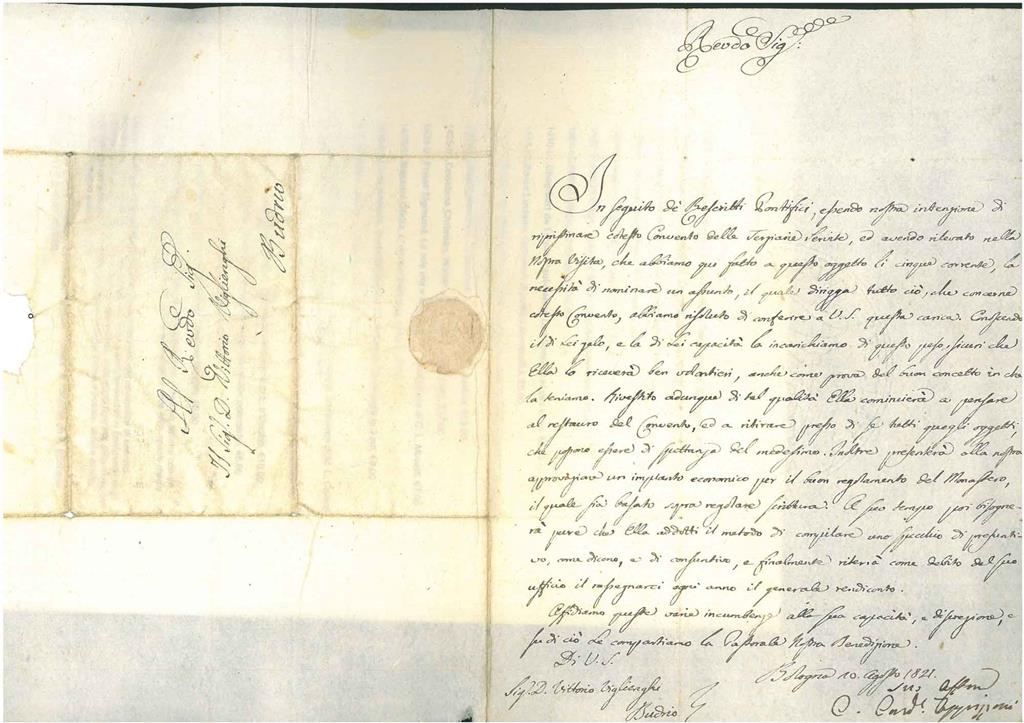 Al Revdo Sig.
Il Sig. D. Vittorio Viglienghi
Budrio
Revdo Sig.
In seguito de' Rescritti Pontificj, essendo nostra intenzione di
ripristinare cotesto Convento delle Terziarie Servite, ed avendo rilevato nella
Nostra Visita, che abbiamo qui fatto a questo oggetto li cinque corrente, la
necessità di nominare un assunto, il quale dirigga tutto ciò, che concerne
cotesto Convento, abbiamo risoluto di conferire a V. S. questa carica. Conoscendo
il di Lei zelo, e la di Lei capacità la incarichiamo di questo peso, sicuri che
Ella lo riceverà ben volontieri, anche come prova del buon concetto in che
la teniamo. Rivestito adunque di tal qualità Ella comincierà a pensare
al restauro del Convento, ed a ritirare presso di se tutti quegli oggetti,
che possono essere di spettanza del medesimo. Inoltre presenterà alla nostra
approvazione un impianto economico per il buon regolamento del Monastero,
il quale sia basato sopra regolare scrittura. A suo tempo poi bisogne-
rà pure che Ella addotti il metodo di compilare uno specchio di preventi-
vo, come dicono, e di consuntivo, e finalmente riterrà come debito del suo
ufficio il rassegnarci ogni anno il generale rendiconto.
Affidiamo queste varie incumbenze alla sua capacità, e discrezione, e
su di ciò Le compartiamo la Pastorale Nostra Benedizione.
Di V. S.
Bologna 10. Agosto 1821.
Sig. D. Vittorio Viglienghi
Budrio
C. Card. Oppizzoni